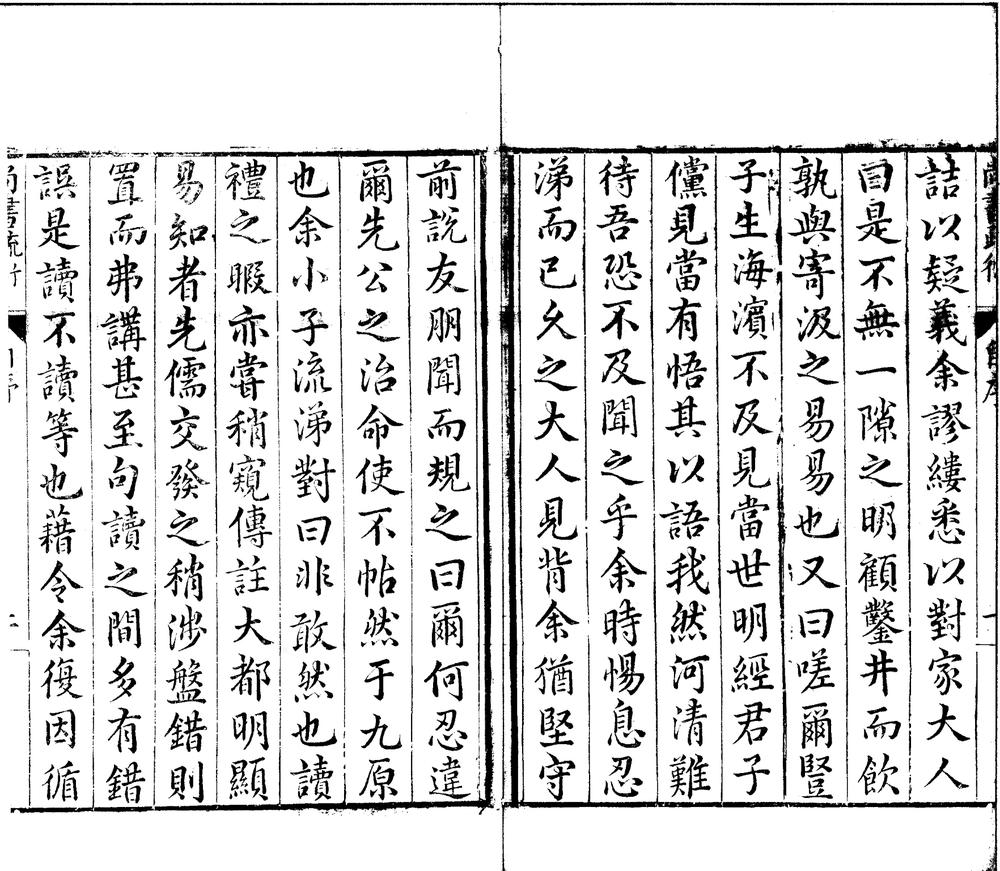 詰以疑義余謬縷悉以對家大人
曰是不無一隙之明顧鑿井而飲
孰與寄汲之易易也又曰嗟爾豎
子生海濱不及見當世明經君子
儻見當有悟其以語我然河清難
待吾恐不及聞之乎余時惕息忍
涕而已久之大人見背余猶堅守
前說友朋聞而規之曰爾何忍違
爾先公之治命使不帖然于九原
也余小子流涕對曰非敢然也讀
禮之暇亦嘗稍窺傳註大都明顯
易知者先儒交發之稍涉盤錯則
置而弗講甚至句讀之間多有錯
誤是讀不讀等也藉令余復因循